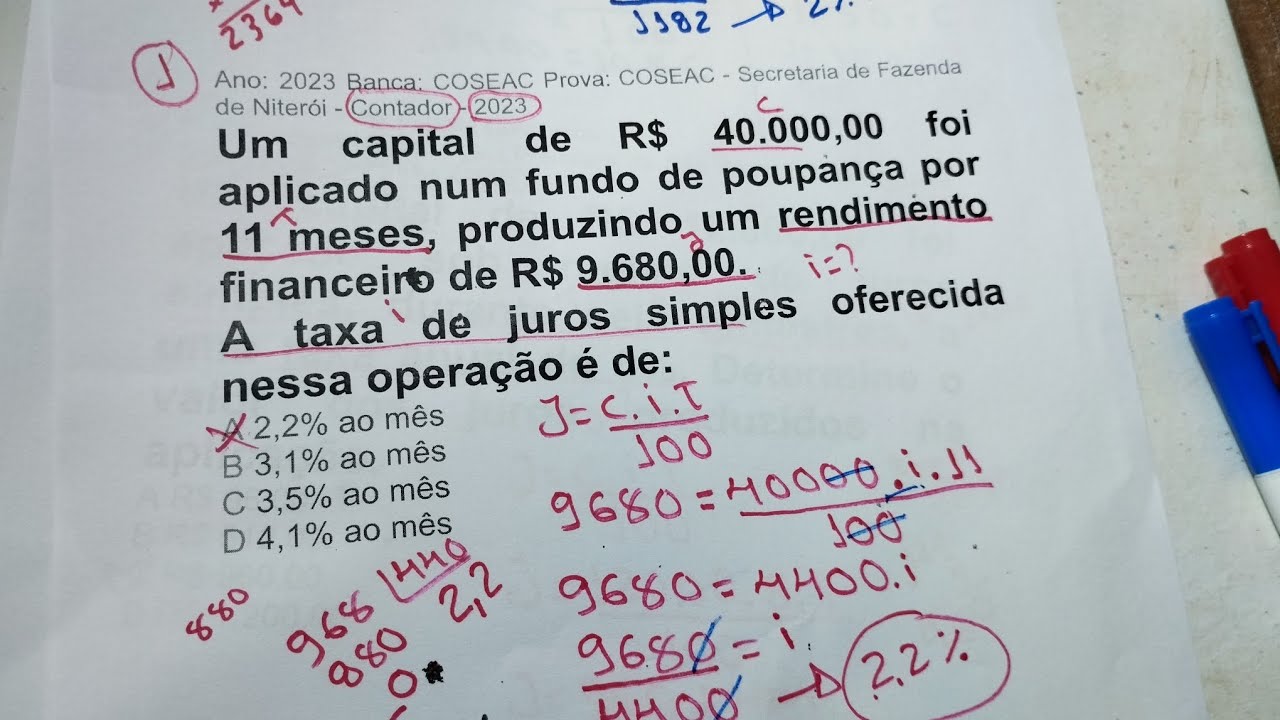 2364
1182 → 2%
1
Ano: 2023 Banca: COSEAC Prova: COSEAC - Secretaria de Fazenda
de Niterói - Contador - 2023
C
Um capital de R$ 40.000,00 foi
aplicado num fundo de poupança por
T
11 meses, produzindo um rendimento
J
financeiro de R$ 9.680,00. i=?
i
A taxa de juros simples oferecida
nessa operação é de:
A 2,2% ao mês
B 3,1% ao mês
C 3,5% ao mês
D 4,1% ao mês
J=C.i.T
100
9680 = 40000.i.11
100
9680 = 4400.i
9680 = i
4400 → 2,2%
880
968 440
880 2,2
0